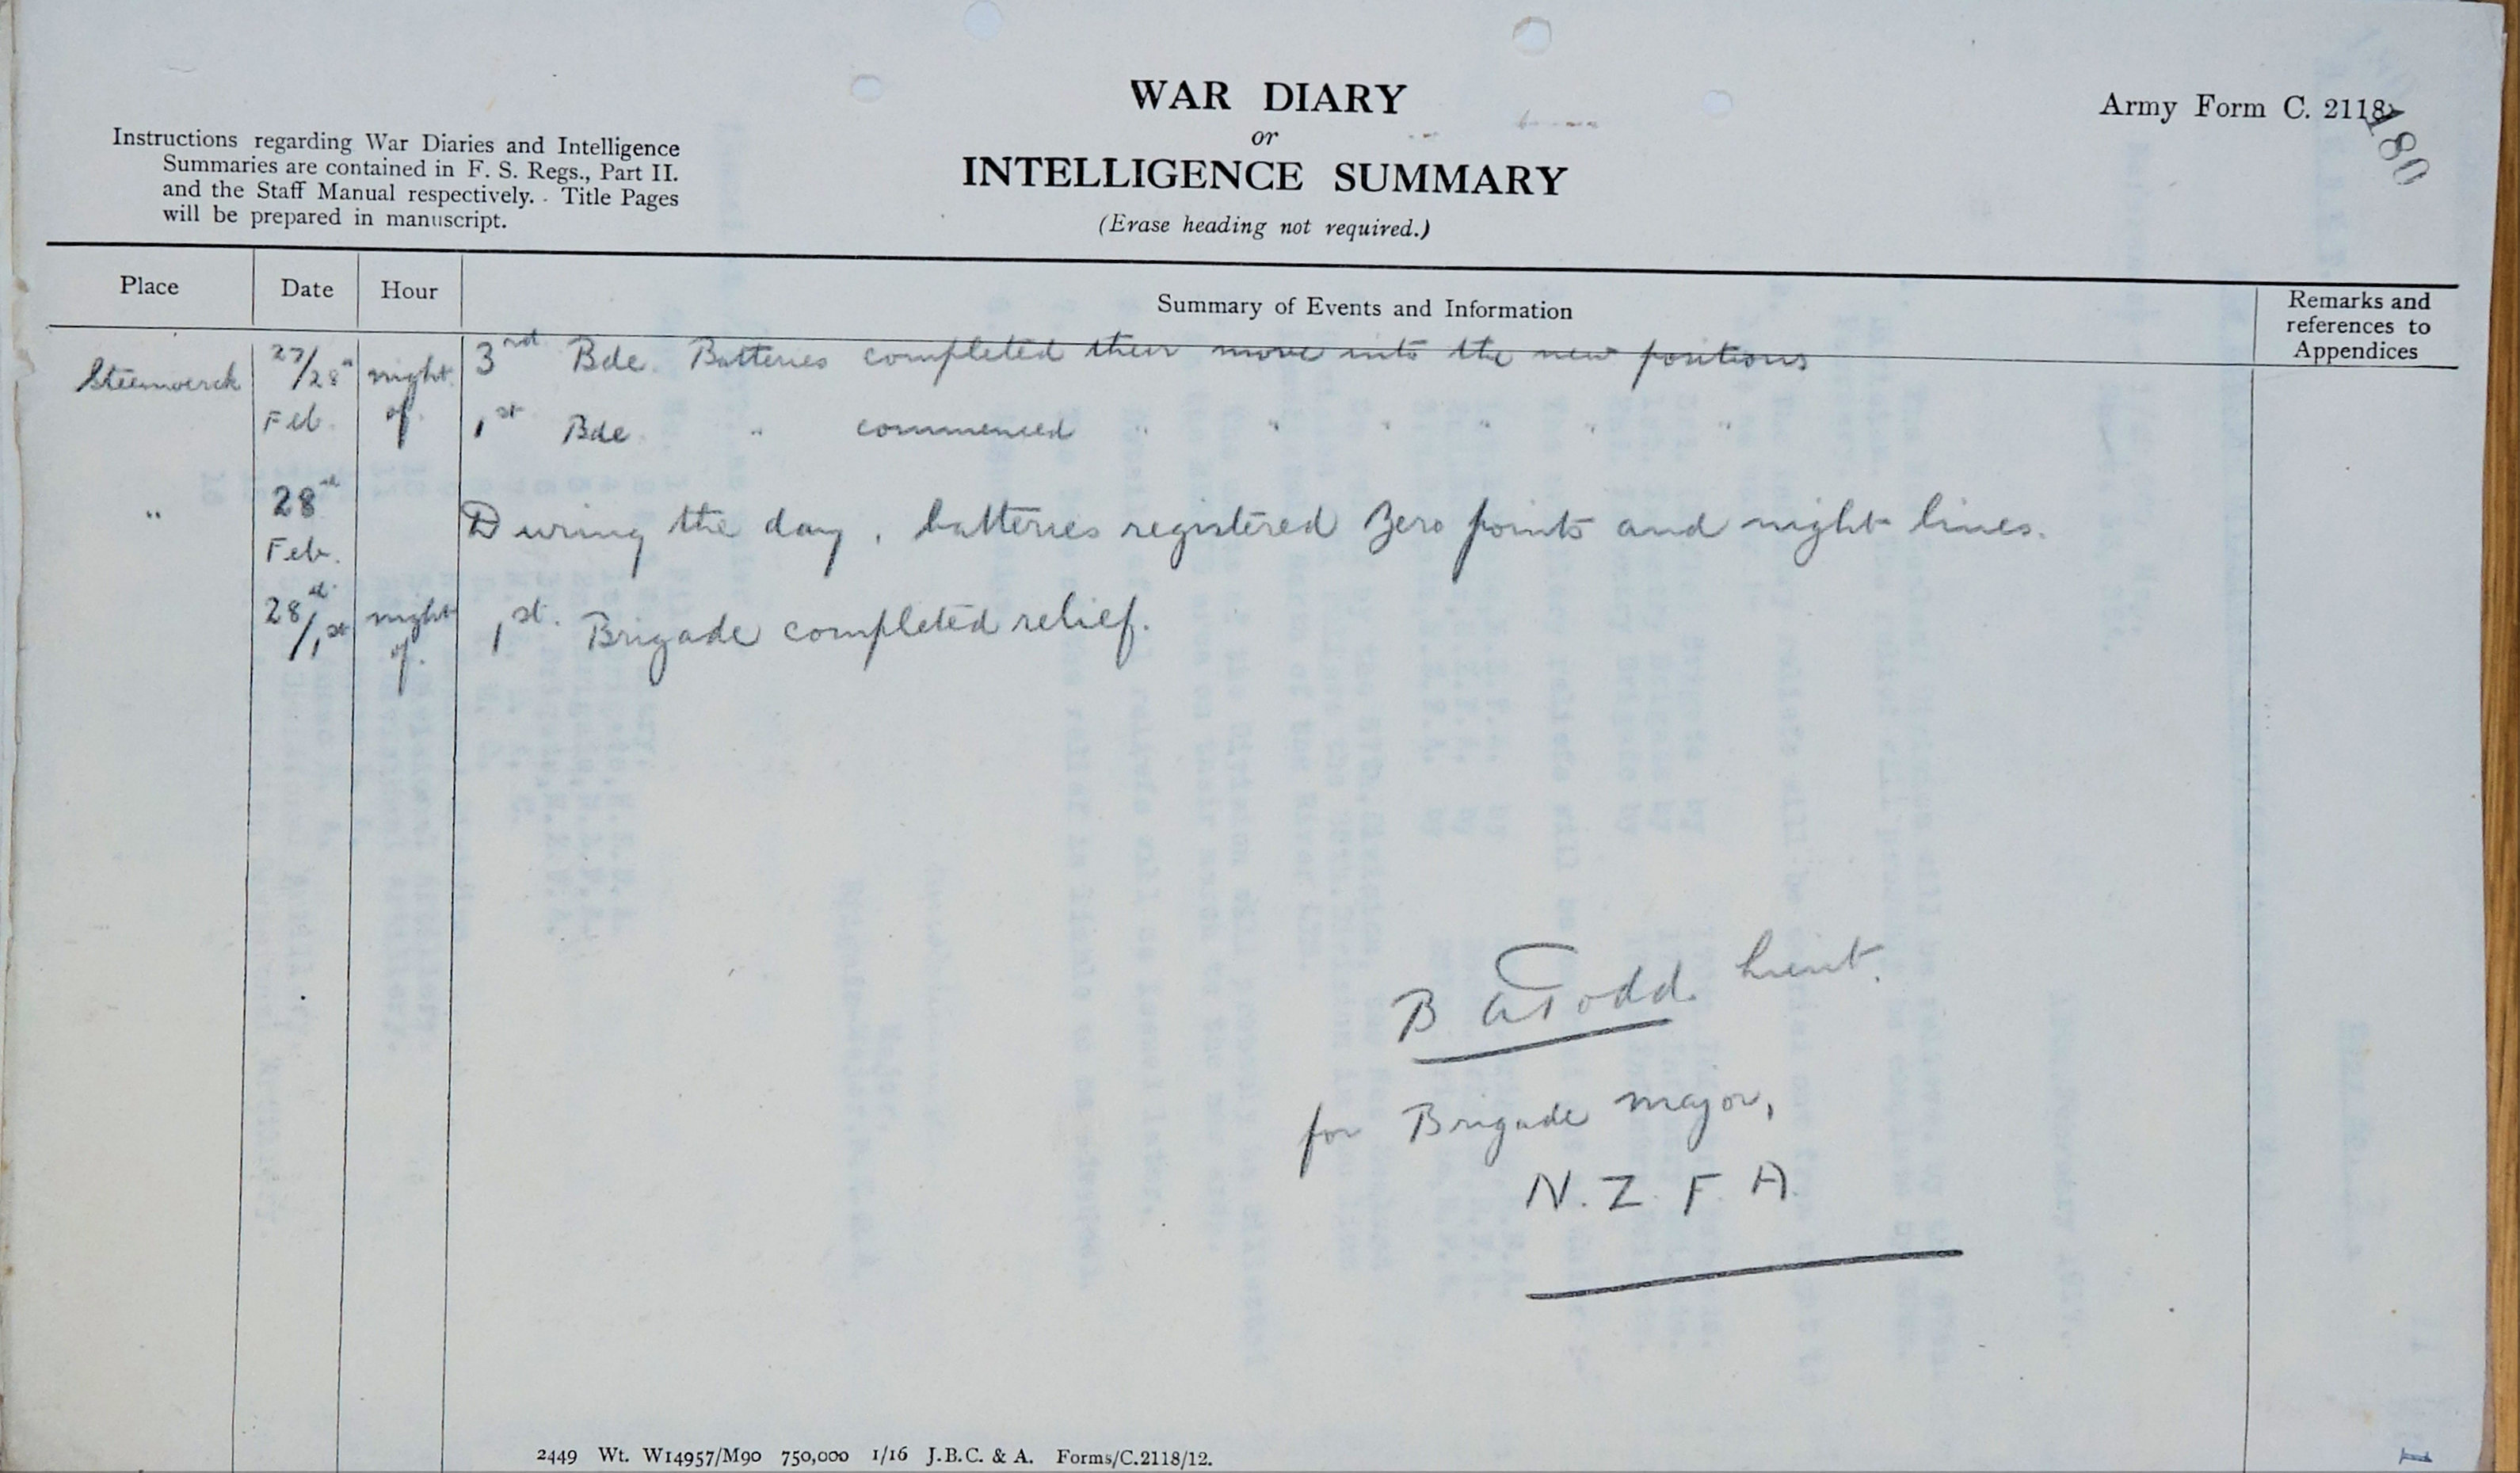 WAR DIARY
or
INTELLIGENCE SUMMARY
(Erase heading not required.)
Army Form C. 2118.
180
Instructions regarding War Diaries and Intelligence
Summaries are contained in F. S. Regs., Part II.
and the Staff Manual respectively. Title Pages
will be prepared in manuscript.
Place Date Hour Summary of Events and Information Remarks and
references to
Appendices
Steenwerck 27/28th night 3rd Bde. Batteries completed their move into the new positions
Feb. of 1st Bde " commenced " " " " " "
" 28th During the day, batteries registered Zero points and night lines.
Feb.
28th/1st night 1st. Brigade completed relief.
of.
B A Todd Lieut.
for Brigade Major,
N. Z. F A
2449 Wt. W14957/M90 750,000 1/16 J.B.C. & A. Forms/C.2118/12.